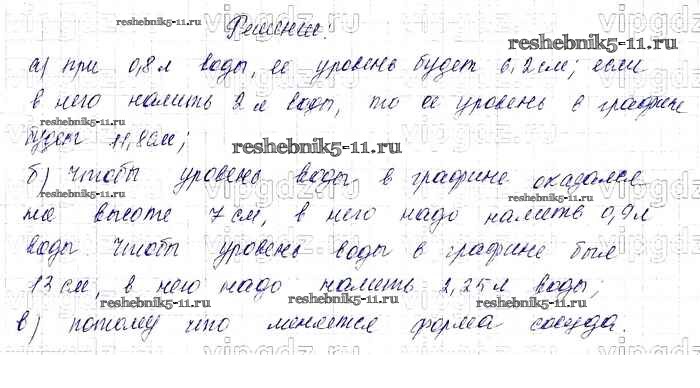 Решение:
а) при 0,8л воды, ее уровень будет 6,2см; если
в него налить 2 л воды, то ее уровень в графине
будет 11,8см;
б) Чтобы уровень воды в графине оказался
на высоте 7 см, в него надо налить 0,9л
воды Чтобы уровень воды в графине был
13 см, в него надо налить 2,25л воды;
в) потому что меняется форма сосуда.
reshebnik5-11.ru
reshebnik5-11.ru
reshebnik5-11.ru
reshebnik5-11.ru
reshebnik5-11.ru
reshebnik5-11.ru
reshebnik5-11.ru